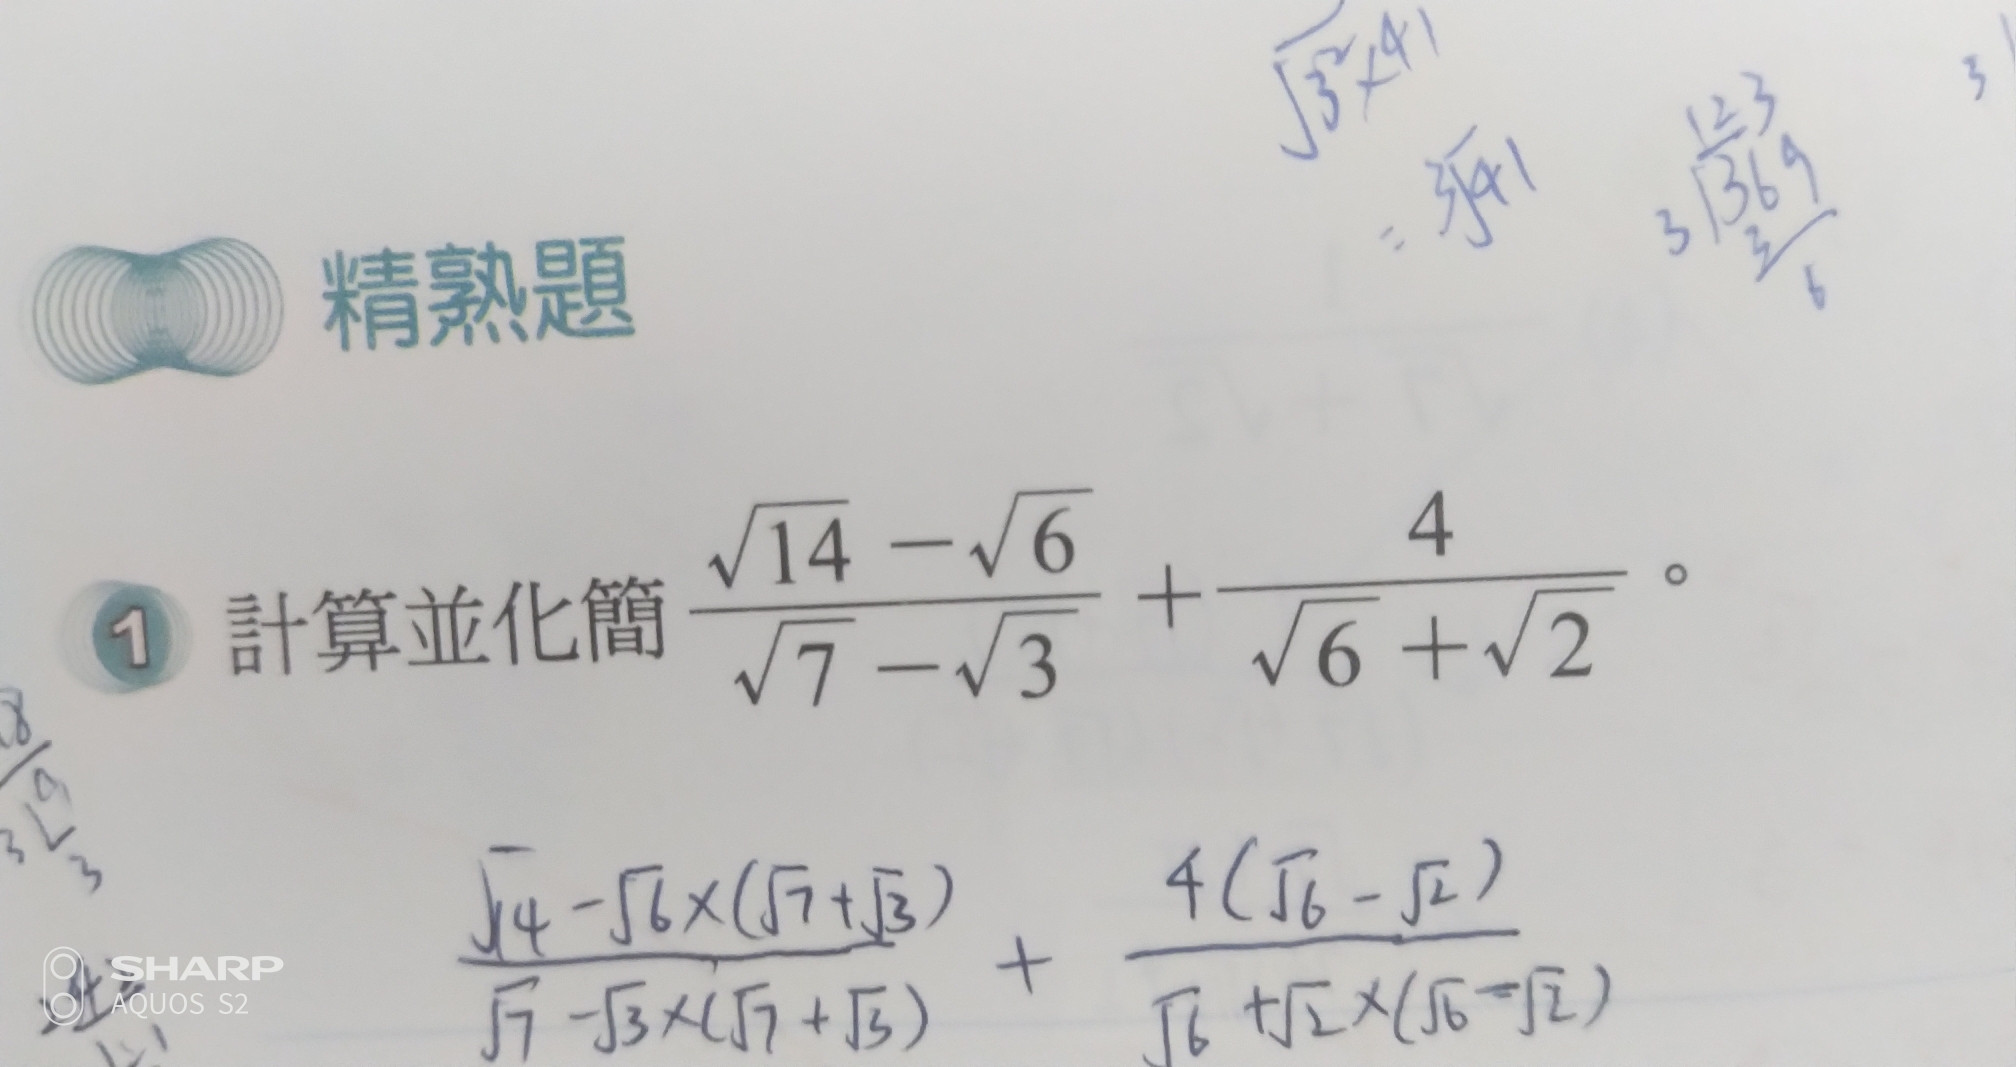 √3²×41
= 3√41
123
3√369
3
6
3
精熟題
1 計算並化簡 (√14 − √6)/(√7 − √3) + 4/(√6 + √2)。
8
9
3
3
(√14 − √6×(√7+√3))/(√7 − √3×(√7+√3)) + 4(√6 − √2)/(√6 + √2×(√6 − √2))
SHARP
AQUOS S2